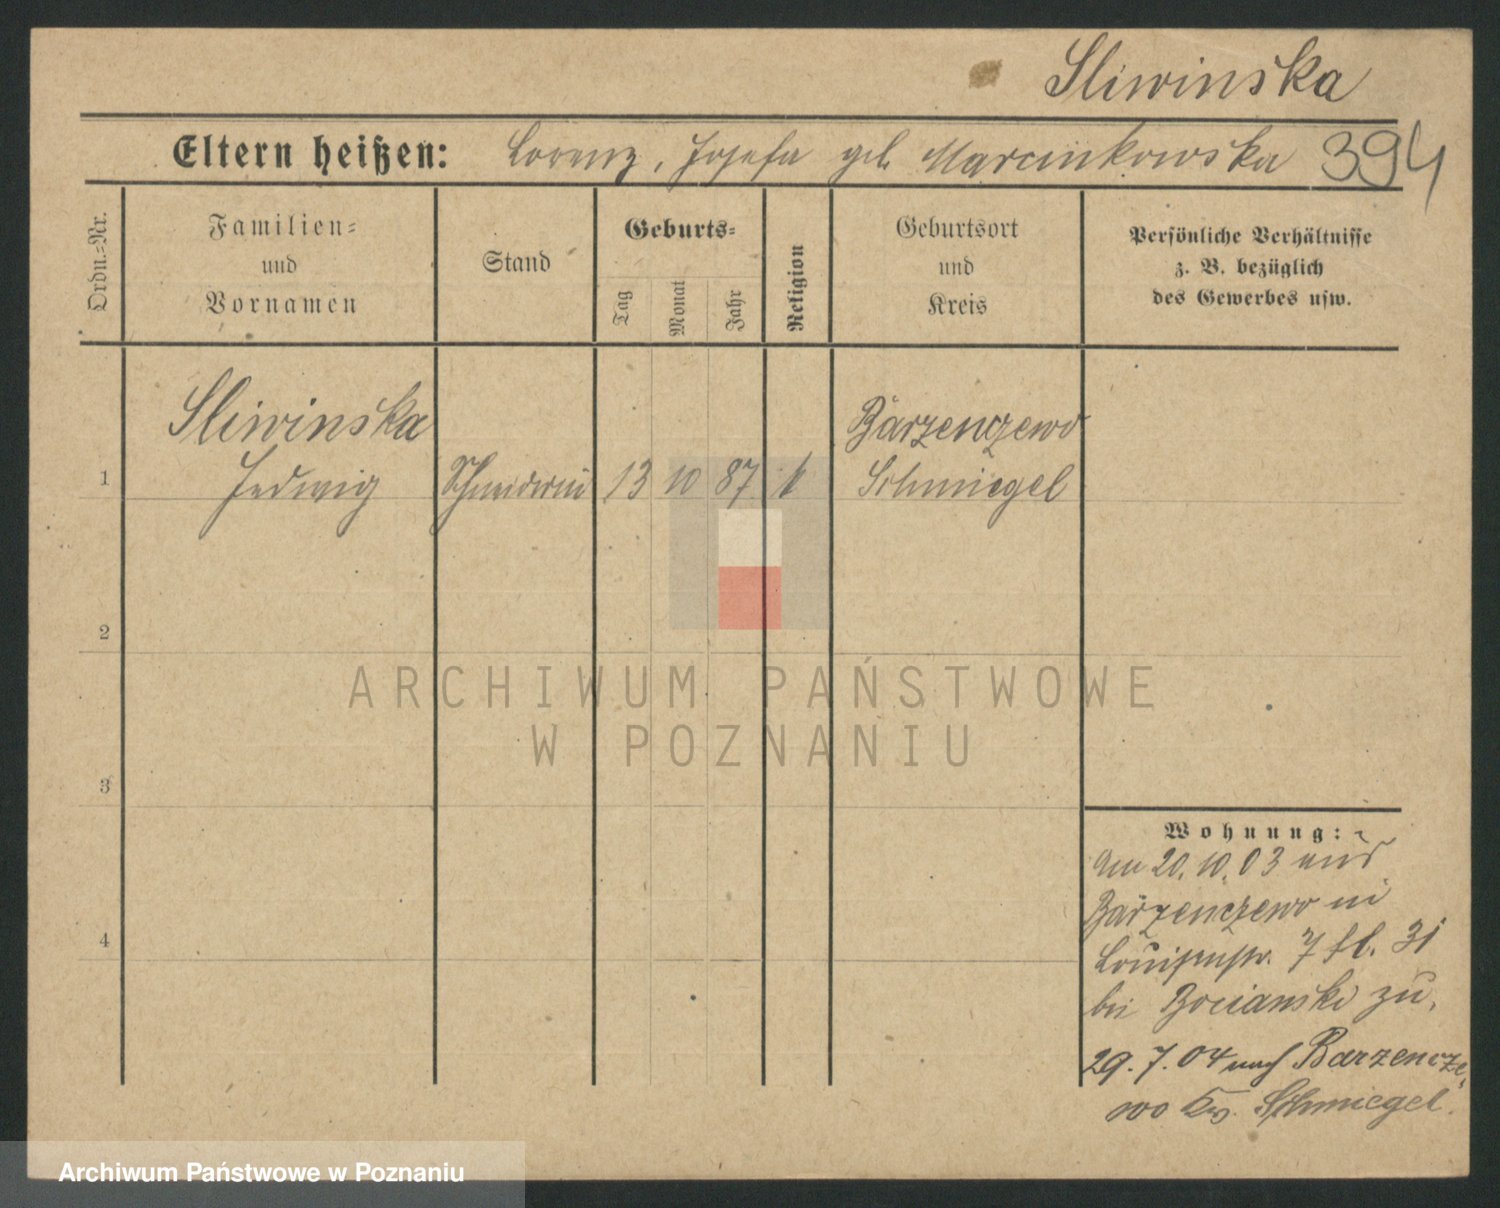 Sliwinska
Eltern heißen: Lorenz, Josefa geb. Marcinkowska 394
Ordn.-Nr.
Familien-
und
Vornamen
Stand
Geburts-
Tag
Monat
Jahr
Religion
Geburtsort
und
Kreis
Persönliche Verhältnisse
z. B. bezüglich
des Gewerbes usw.
Sliwinska
Barzenczewo
1 Hedwig Schneiderin 13 10 87 k Schmiegel
2
ARCHIWUM PAŃSTWOWE
W POZNANIU
3
Wohnung:
Am 20.10.03 aus
Barzenczewo in
Louisenstr. 7 fl. 31
bei Bocianski zu.
4
29.7.04 nach Barzencze
wo Krs. Schmiegel.
Archiwum Państwowe w Poznaniu